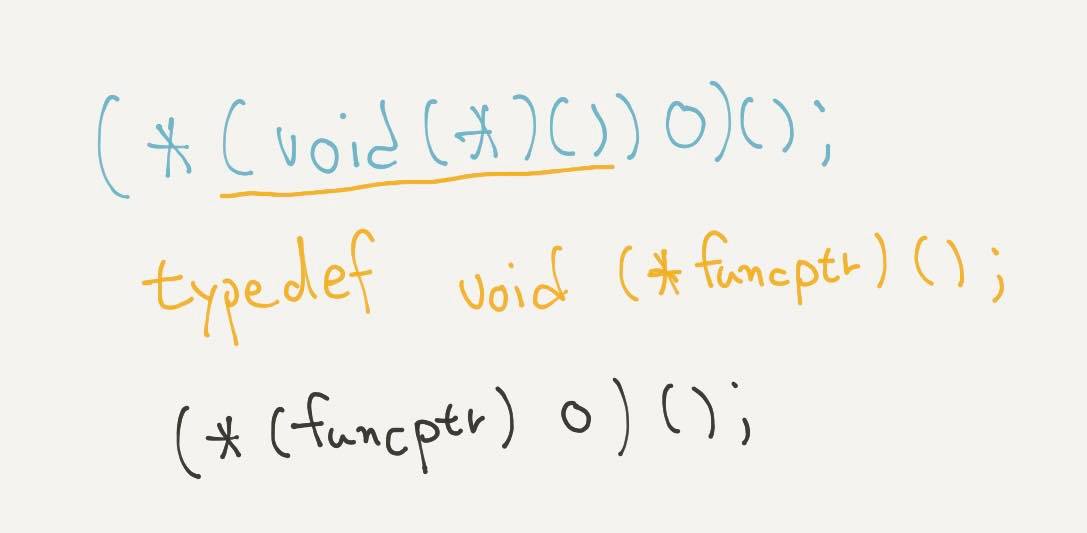 (*(void(*)())0)();
typedef void (*funcptr)();
(*(funcptr) 0)();